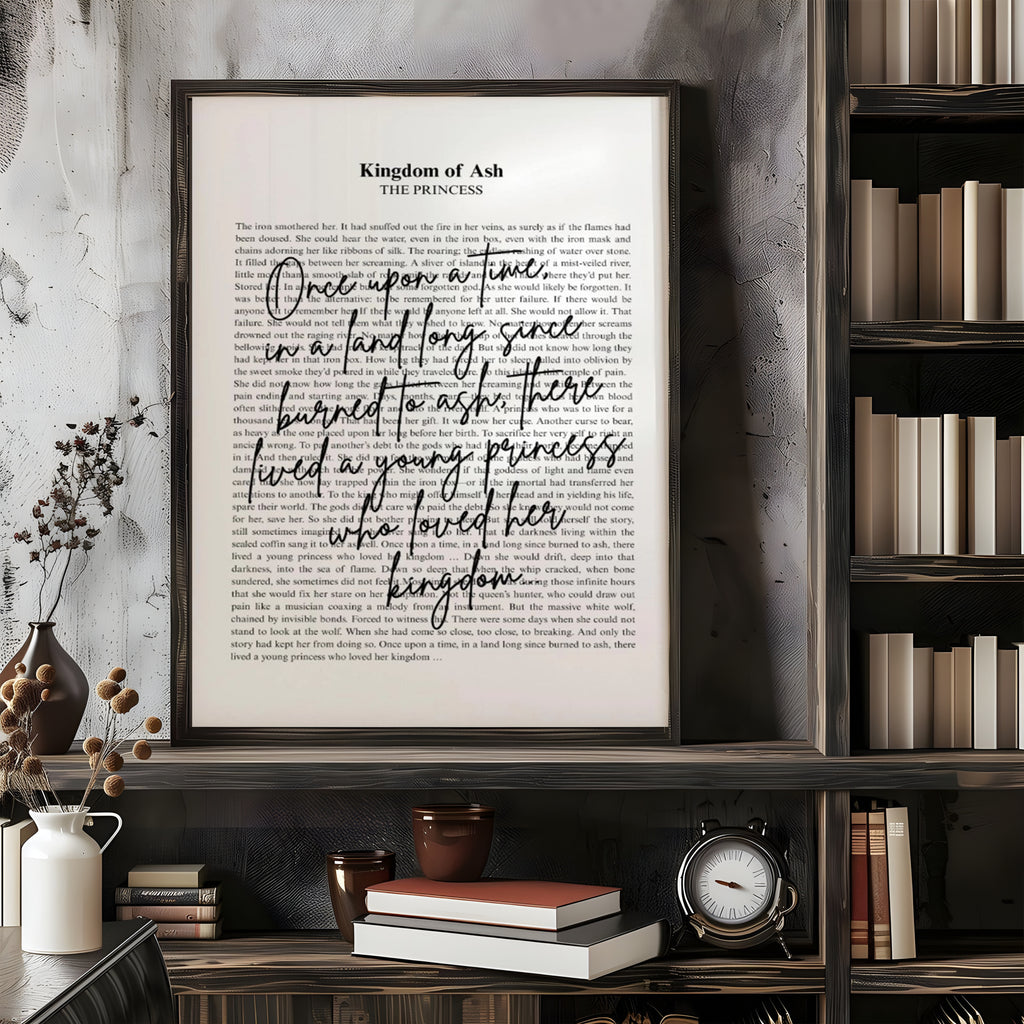 Kingdom of Ash
THE PRINCESS
Once upon a time,
in a land long since
burned to ash, there
lived a young princess
who loved her
kingdom...
The iron smothered her. It had snuffed out the fire in her veins, as surely as if the flames had
been doused. She could hear the water, even in the iron box, even with the iron mask and
chains adorning her like ribbons of silk. The roaring; the endless rushing of water over stone.
It filled the gaps between her screaming. A sliver of island in the heart of a mist-veiled river,
little more than a smooth slab of rock the rapids and where they'd put her.
Stored In a some forgotten god. As she would likely be forgotten. It
was better than the alternative: to be remembered for her utter failure. If there would be
anyone remember her. If there anyone left at all. She would not allow it. That
failure. She would not tell them what they wished to know. No her screams
drowned out the raging river. No matter how through the
bellowing track of the days. But she did not know how long they
had kept her in that iron box. How long they had forced her to sleep, lulled into oblivion by
the sweet smoke they'd poured in while they traveled to this temple of pain.
She did not know how long the gaps between her screaming the
pain ending and starting anew. own blood
often slithered A princess who was to live for a
thousand had been her gift. It was now her curse. Another curse to bear,
as heavy as the one placed upon her long before her birth. To sacrifice her very self to right an
ancient wrong. To pay another's debt to the gods who had
in it. And then
if the goddess of light and even
she now lay trapped within the iron or if the immortal had transferred her
attentions to another. To the king who might offer himself instead and in yielding his life,
spare their world. The gods did care who paid the debt. So they would not come
for her, save her. So she did not bother But herself the story,
still sometimes That the darkness living within the
sealed coffin sang it to her as well. Once upon a time, in a land long since burned to ash, there
lived a young princess who loved her kingdom … Down she would drift, deep into that
darkness, into the sea of flame. Down so deep that when the whip cracked, when bone
sundered, she sometimes did not feel it. during those infinite hours
that she would fix her stare on her Not the queen's hunter, who could draw out
pain like a musician coaxing a melody from an instrument. But the massive white wolf,
chained by invisible bonds. Forced to witness this. There were some days when she could not
stand to look at the wolf. When she had come so close, too close, to breaking. And only the
story had kept her from doing so. Once upon a time, in a land long since burned to ash, there
lived a young princess who loved her kingdom …